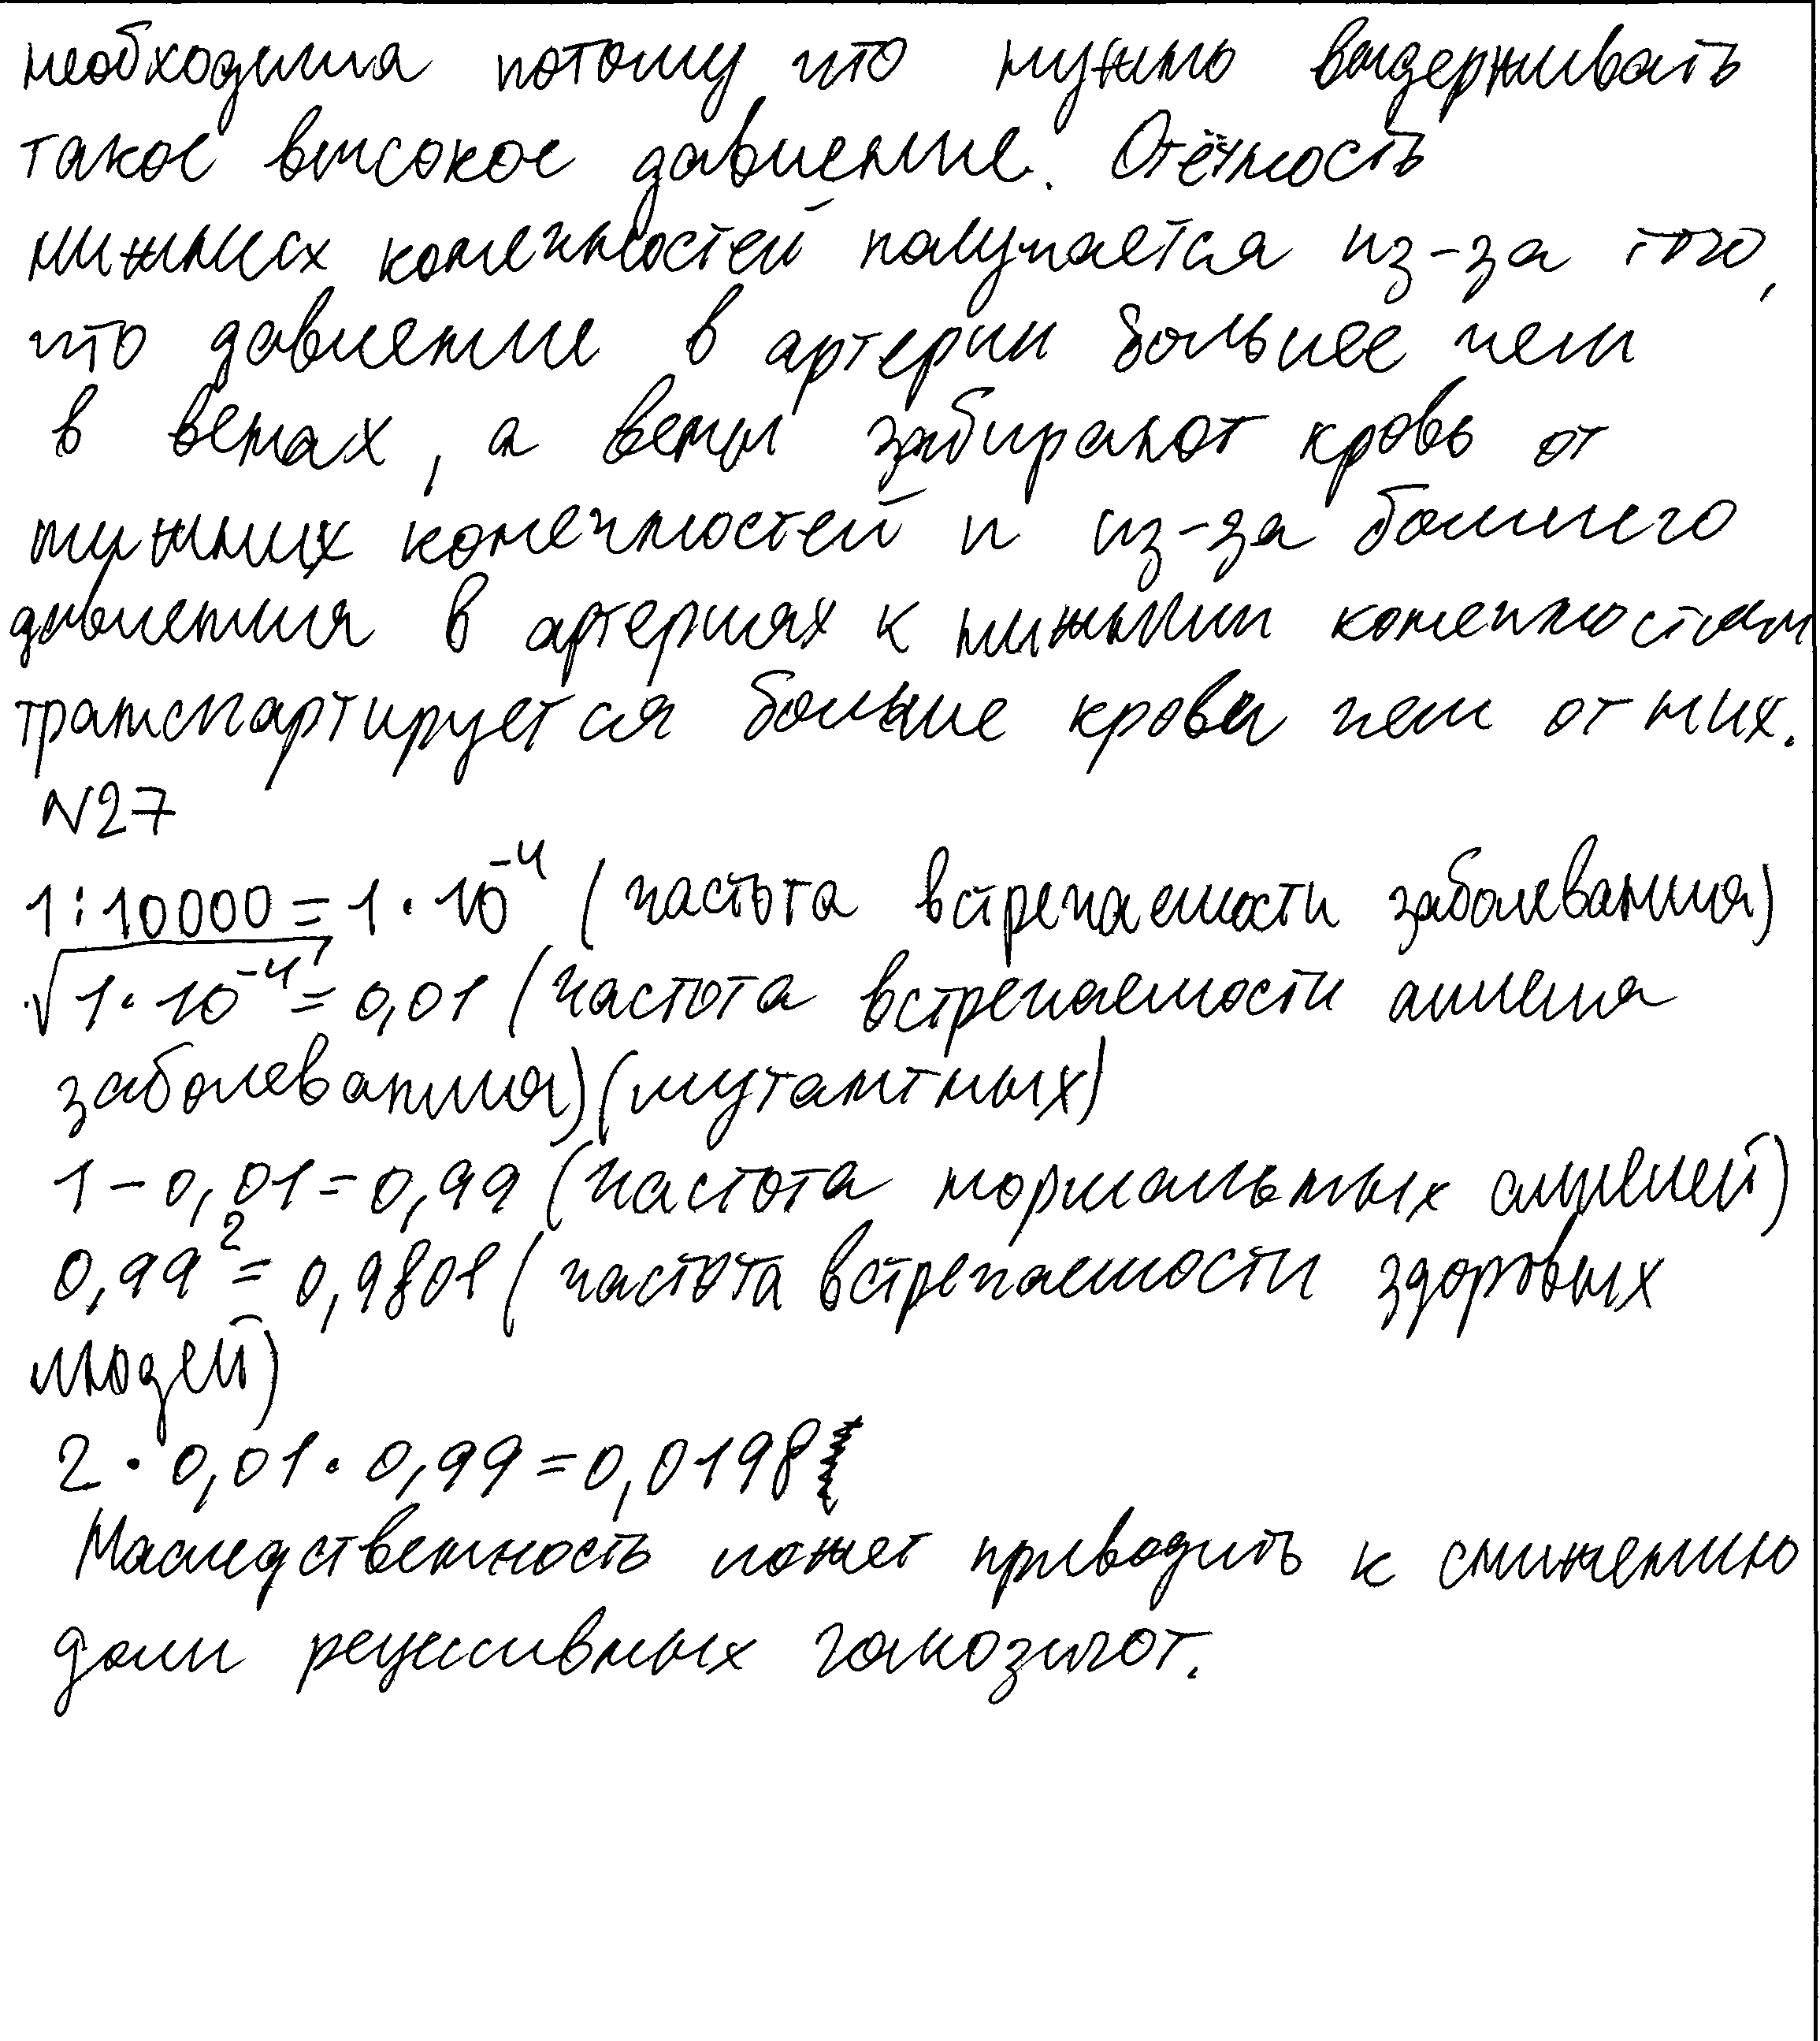 необходима потому что нужно выдерживать
такое высокое давление. Отёчность
нижних конечностей получается из-за того,
что давление в артерии большее чем
в венах, а вены забирают кровь от
нижних конечностей и из-за большего
давления в артериях к нижним конечностям
транспартируется больше крови чем от них.
N27
1:10000=1·10⁻⁴ (частота встречаемости заболевания)
√1·10⁻⁴=0,01 (частота встречаемости аллеля
заболевания)(мутантных)
1-0,01=0,99 (частота нормальных аллелей)
0,99²=0,9801 (частота встречаемости здоровых
людей)
2·0,01·0,99=0,0198
Наследственность может приводить к снижению
доли рецессивных гомозигот.